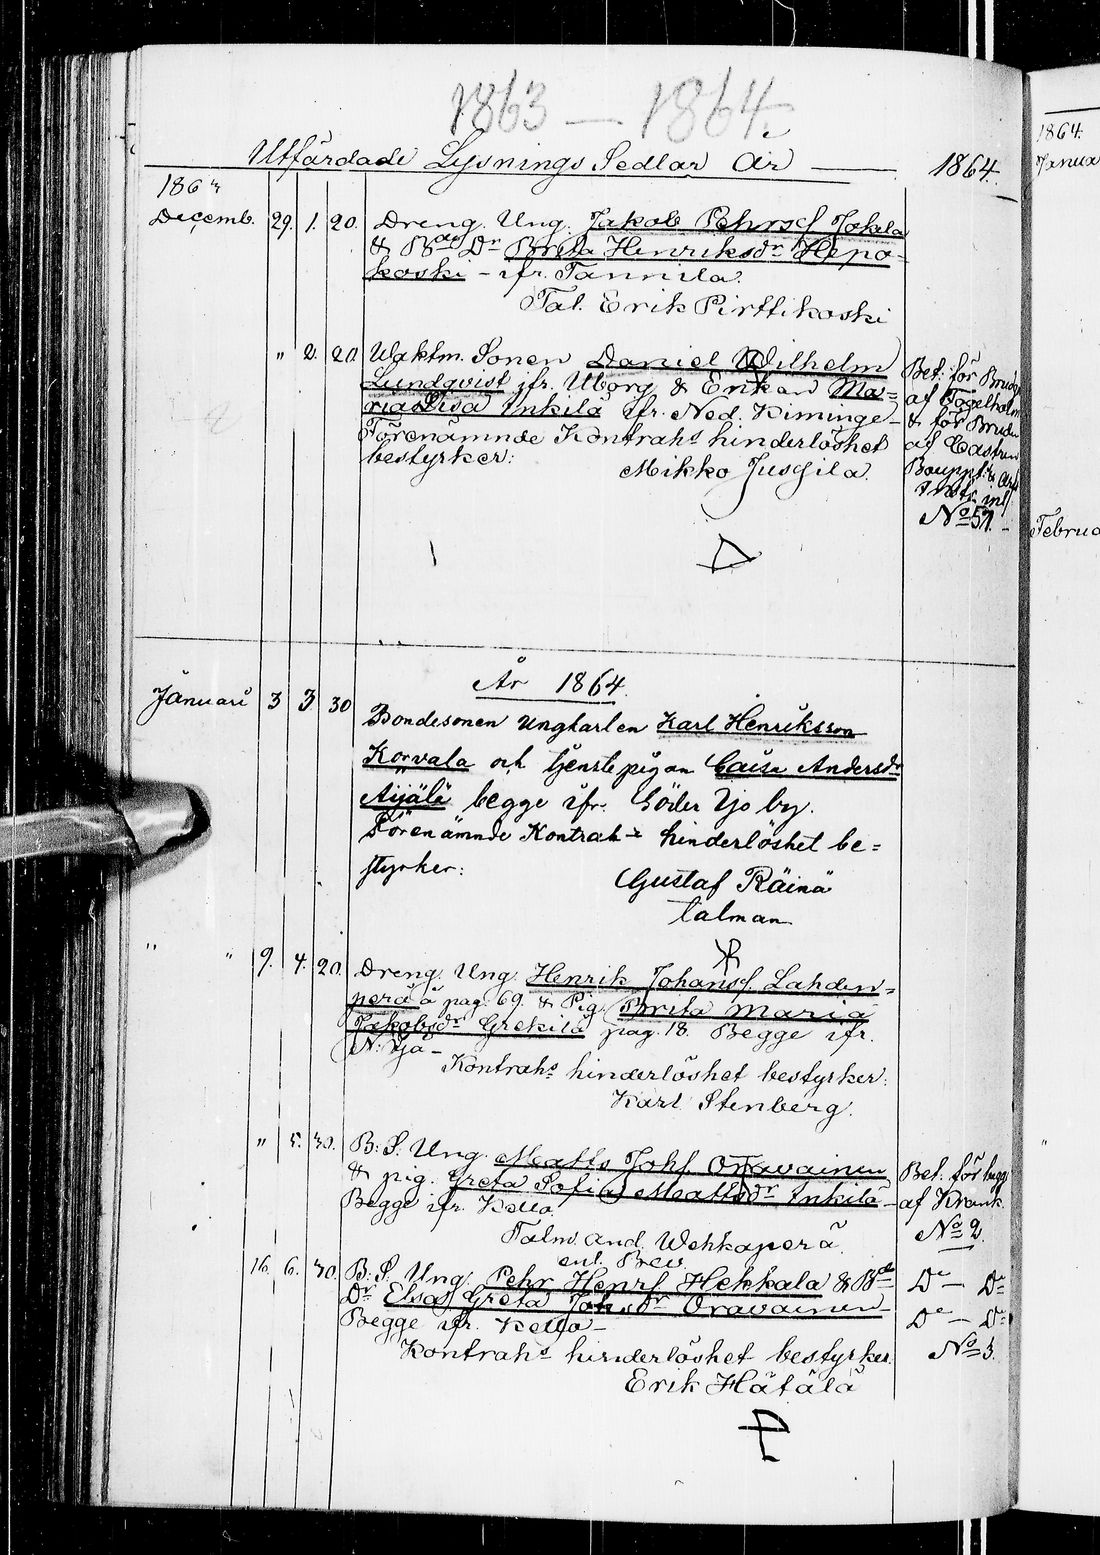 1863 — 1864.
Utfärdade Lysnings Sedlar År — 1864.
1863
Decemb. 29. 1. 20. Dreng. Ung. Jakob Pehrss. Jokela
& Bde Dr Brita Henriksdr Hepo-
koski - ifr. Tannila.
Tal. Erik Pirttikoski
" 2. 20 Waktm. Sonen Daniel Wilhelm
Lundqvist ifr. Uborg & Enkan Ma=
ria Lisa Inkilä ifr. Ned. Kiminge -
Förenämnde Kontrahs hinderlöshet
bestyrker:
Mikko Jussila.
Bet. för Brudg
af Fogelholm
& för Bruden
af Castren
Bouppt. &
intr. inl.
No 57. -
År 1864.
Januari 3 3 30 Bondesonen Ungkarlen Karl Henriksson
Korvala och tjenstepigan Caisa Andersdr
Äijälä begge ifr. Söder Ijo by.
Förenämnde Kontrah-s hinderlöshet be=
styrker:
Gustaf Räinä
talman
" " 9. 4. 20. Dreng. Ung. Henrik Johanss. Lahden=
perä å pag. 69. & Pig. Brita Maria
Jakobsdr Grekilä pag. 18. Begge ifr.
N. Ijå -
Kontrahs hinderlöshet bestyrker:
Karl Stenberg.
" 5. 30. B: S. Ung. Matts Johs. Oravainen
& pig. Greta Sofia Mattsdr Inkilä -
Begge ifr. Kello.
Talm. And. Wehkaperä
enl. Brev.
Bet. för begge
af Krank.
No 2.
16. 6. 30. B: S. Ung. Pehr Henrs. Hekkala & Bde
Dr Elsa Greta Johsdr Oravainen
Begge ifr. Kello -
Kontrahs hinderlöshet bestyrker.
Erik Hätälä
Do — Do
Do — Do
No 3.
1864.
Janua
Februa